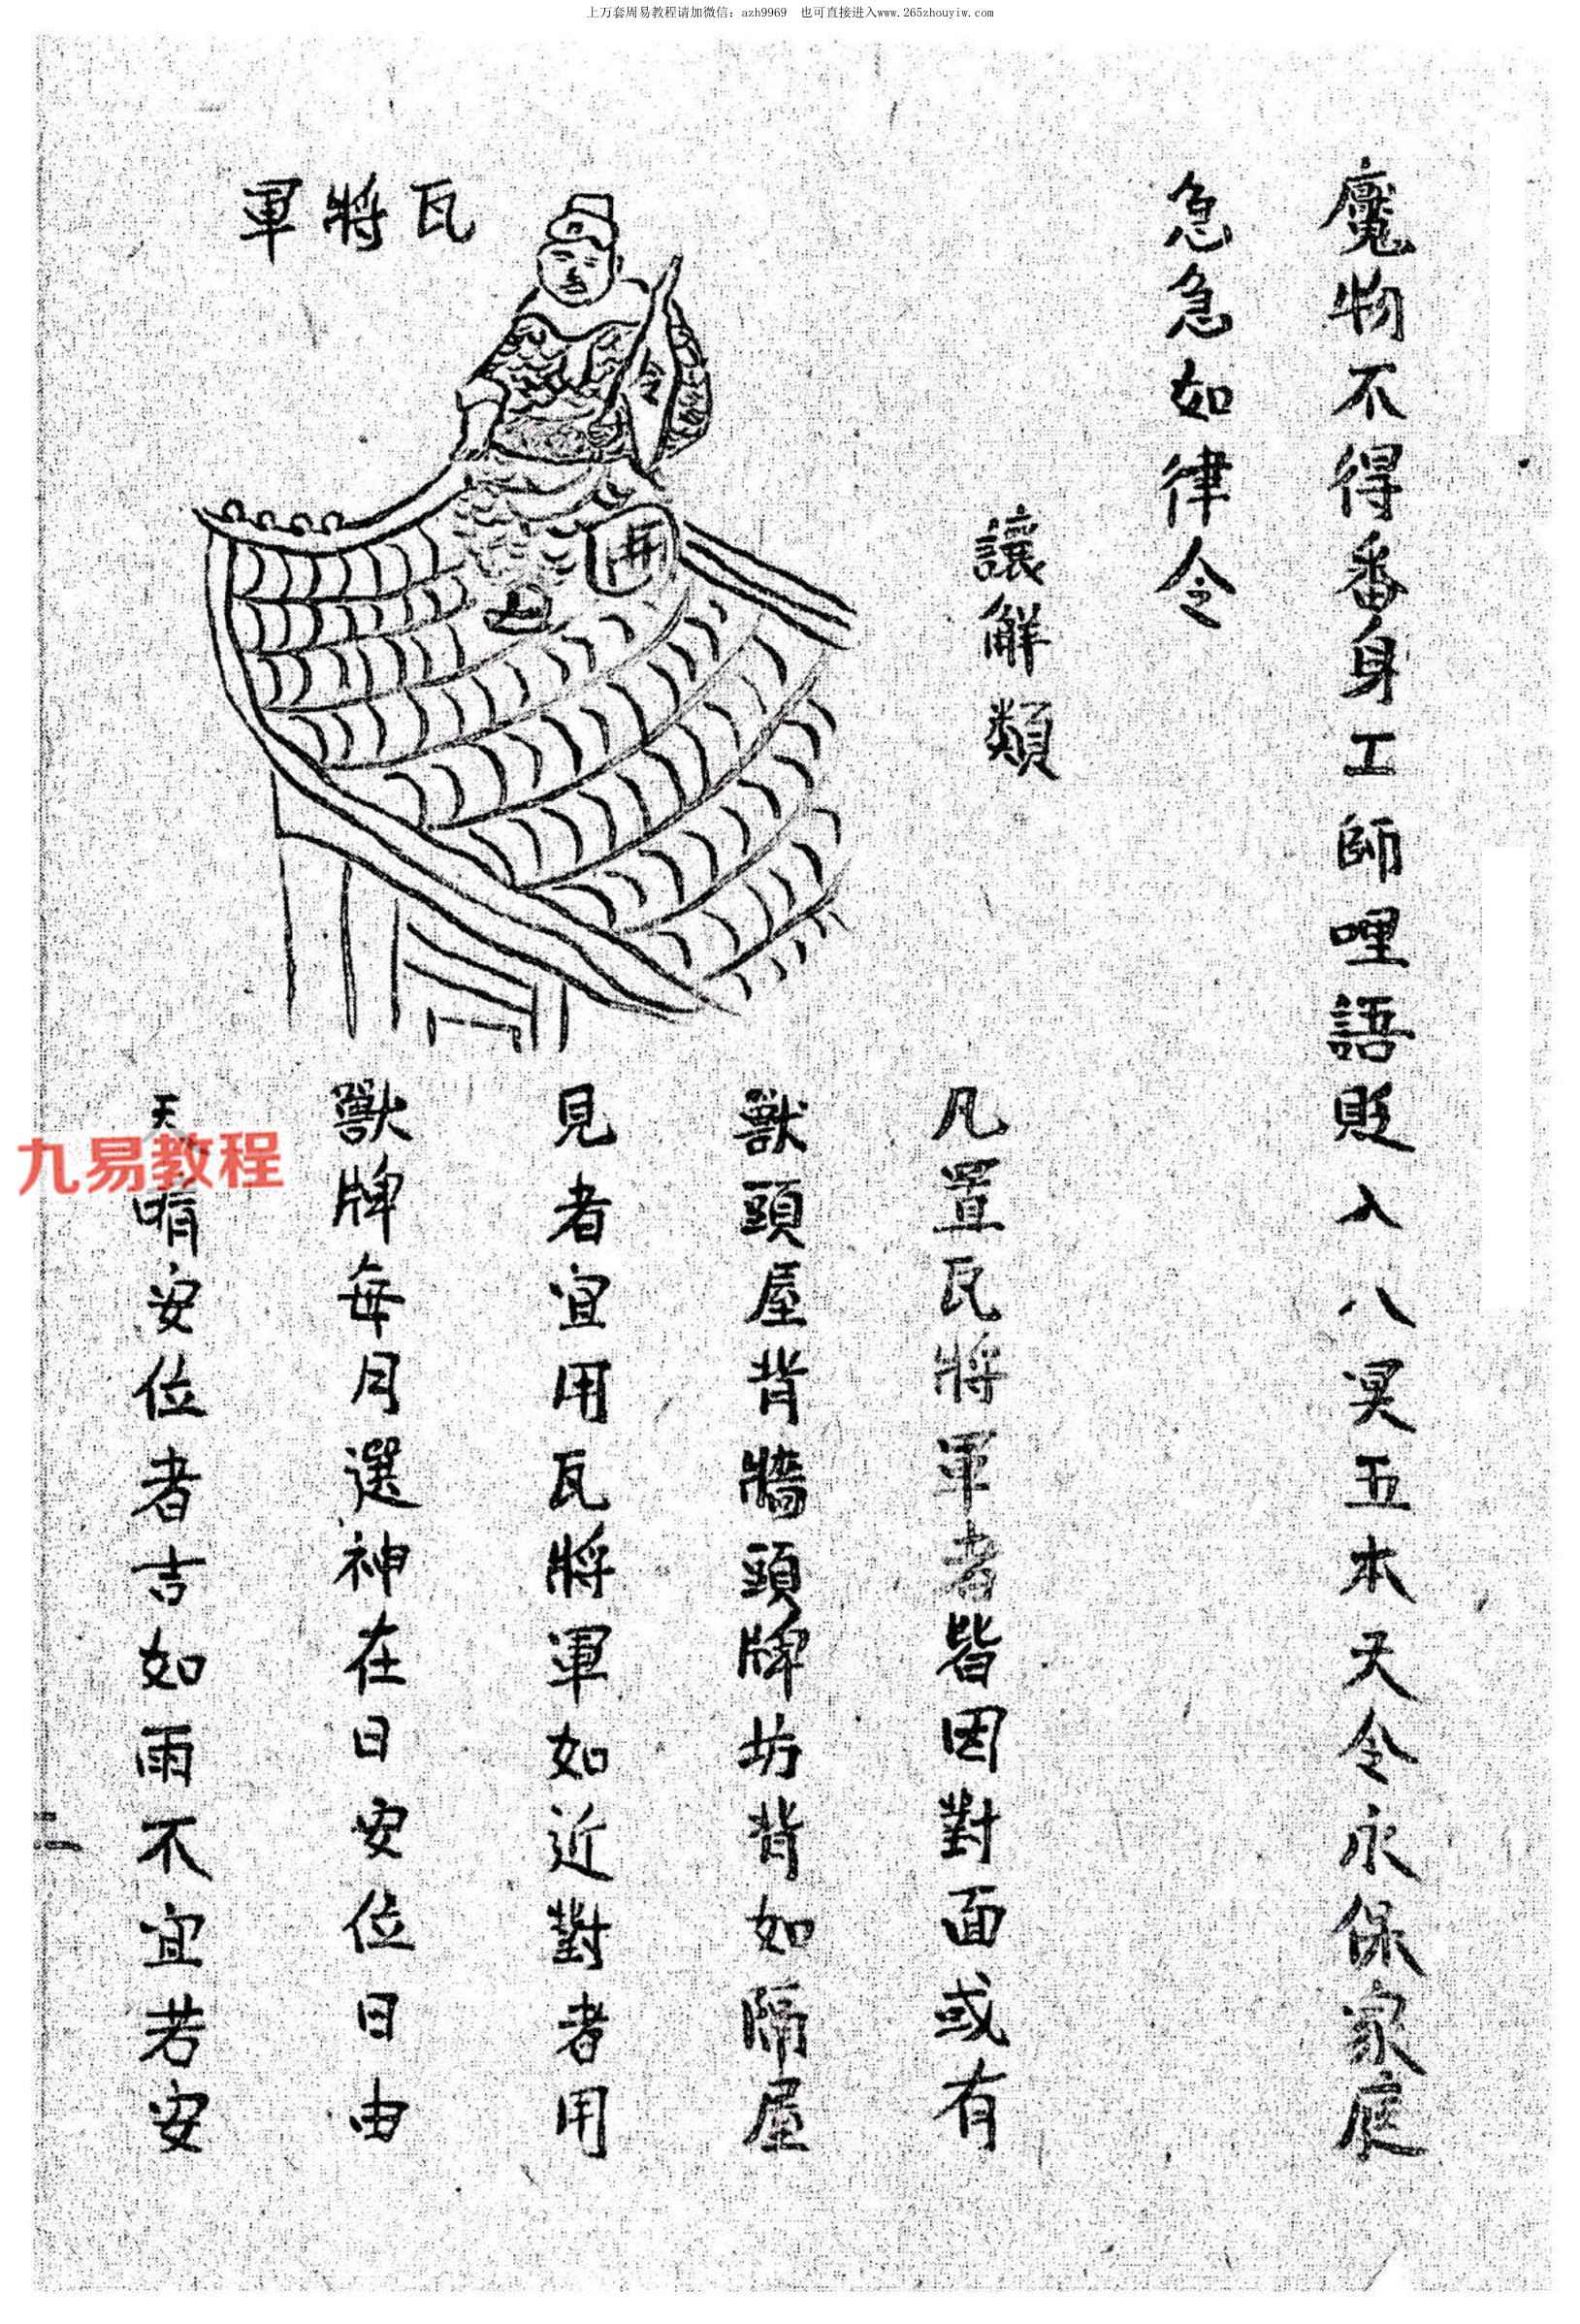 上万套周易教程请加微信：azh9969 也可直接进入www.265zhouyiw.com
魔物不得番身工師哩語貶入八冥五本天令永保家庭
急急如律令
讓解類
瓦將軍
令
凡置瓦將軍者皆因對面或有
獸頭屋背牆頭牌坊背如隔屋
見者宜用瓦將軍如近對者用
獸牌每月選神在日安位日由
天晴安位者吉如雨不宜若安
九易教程
二